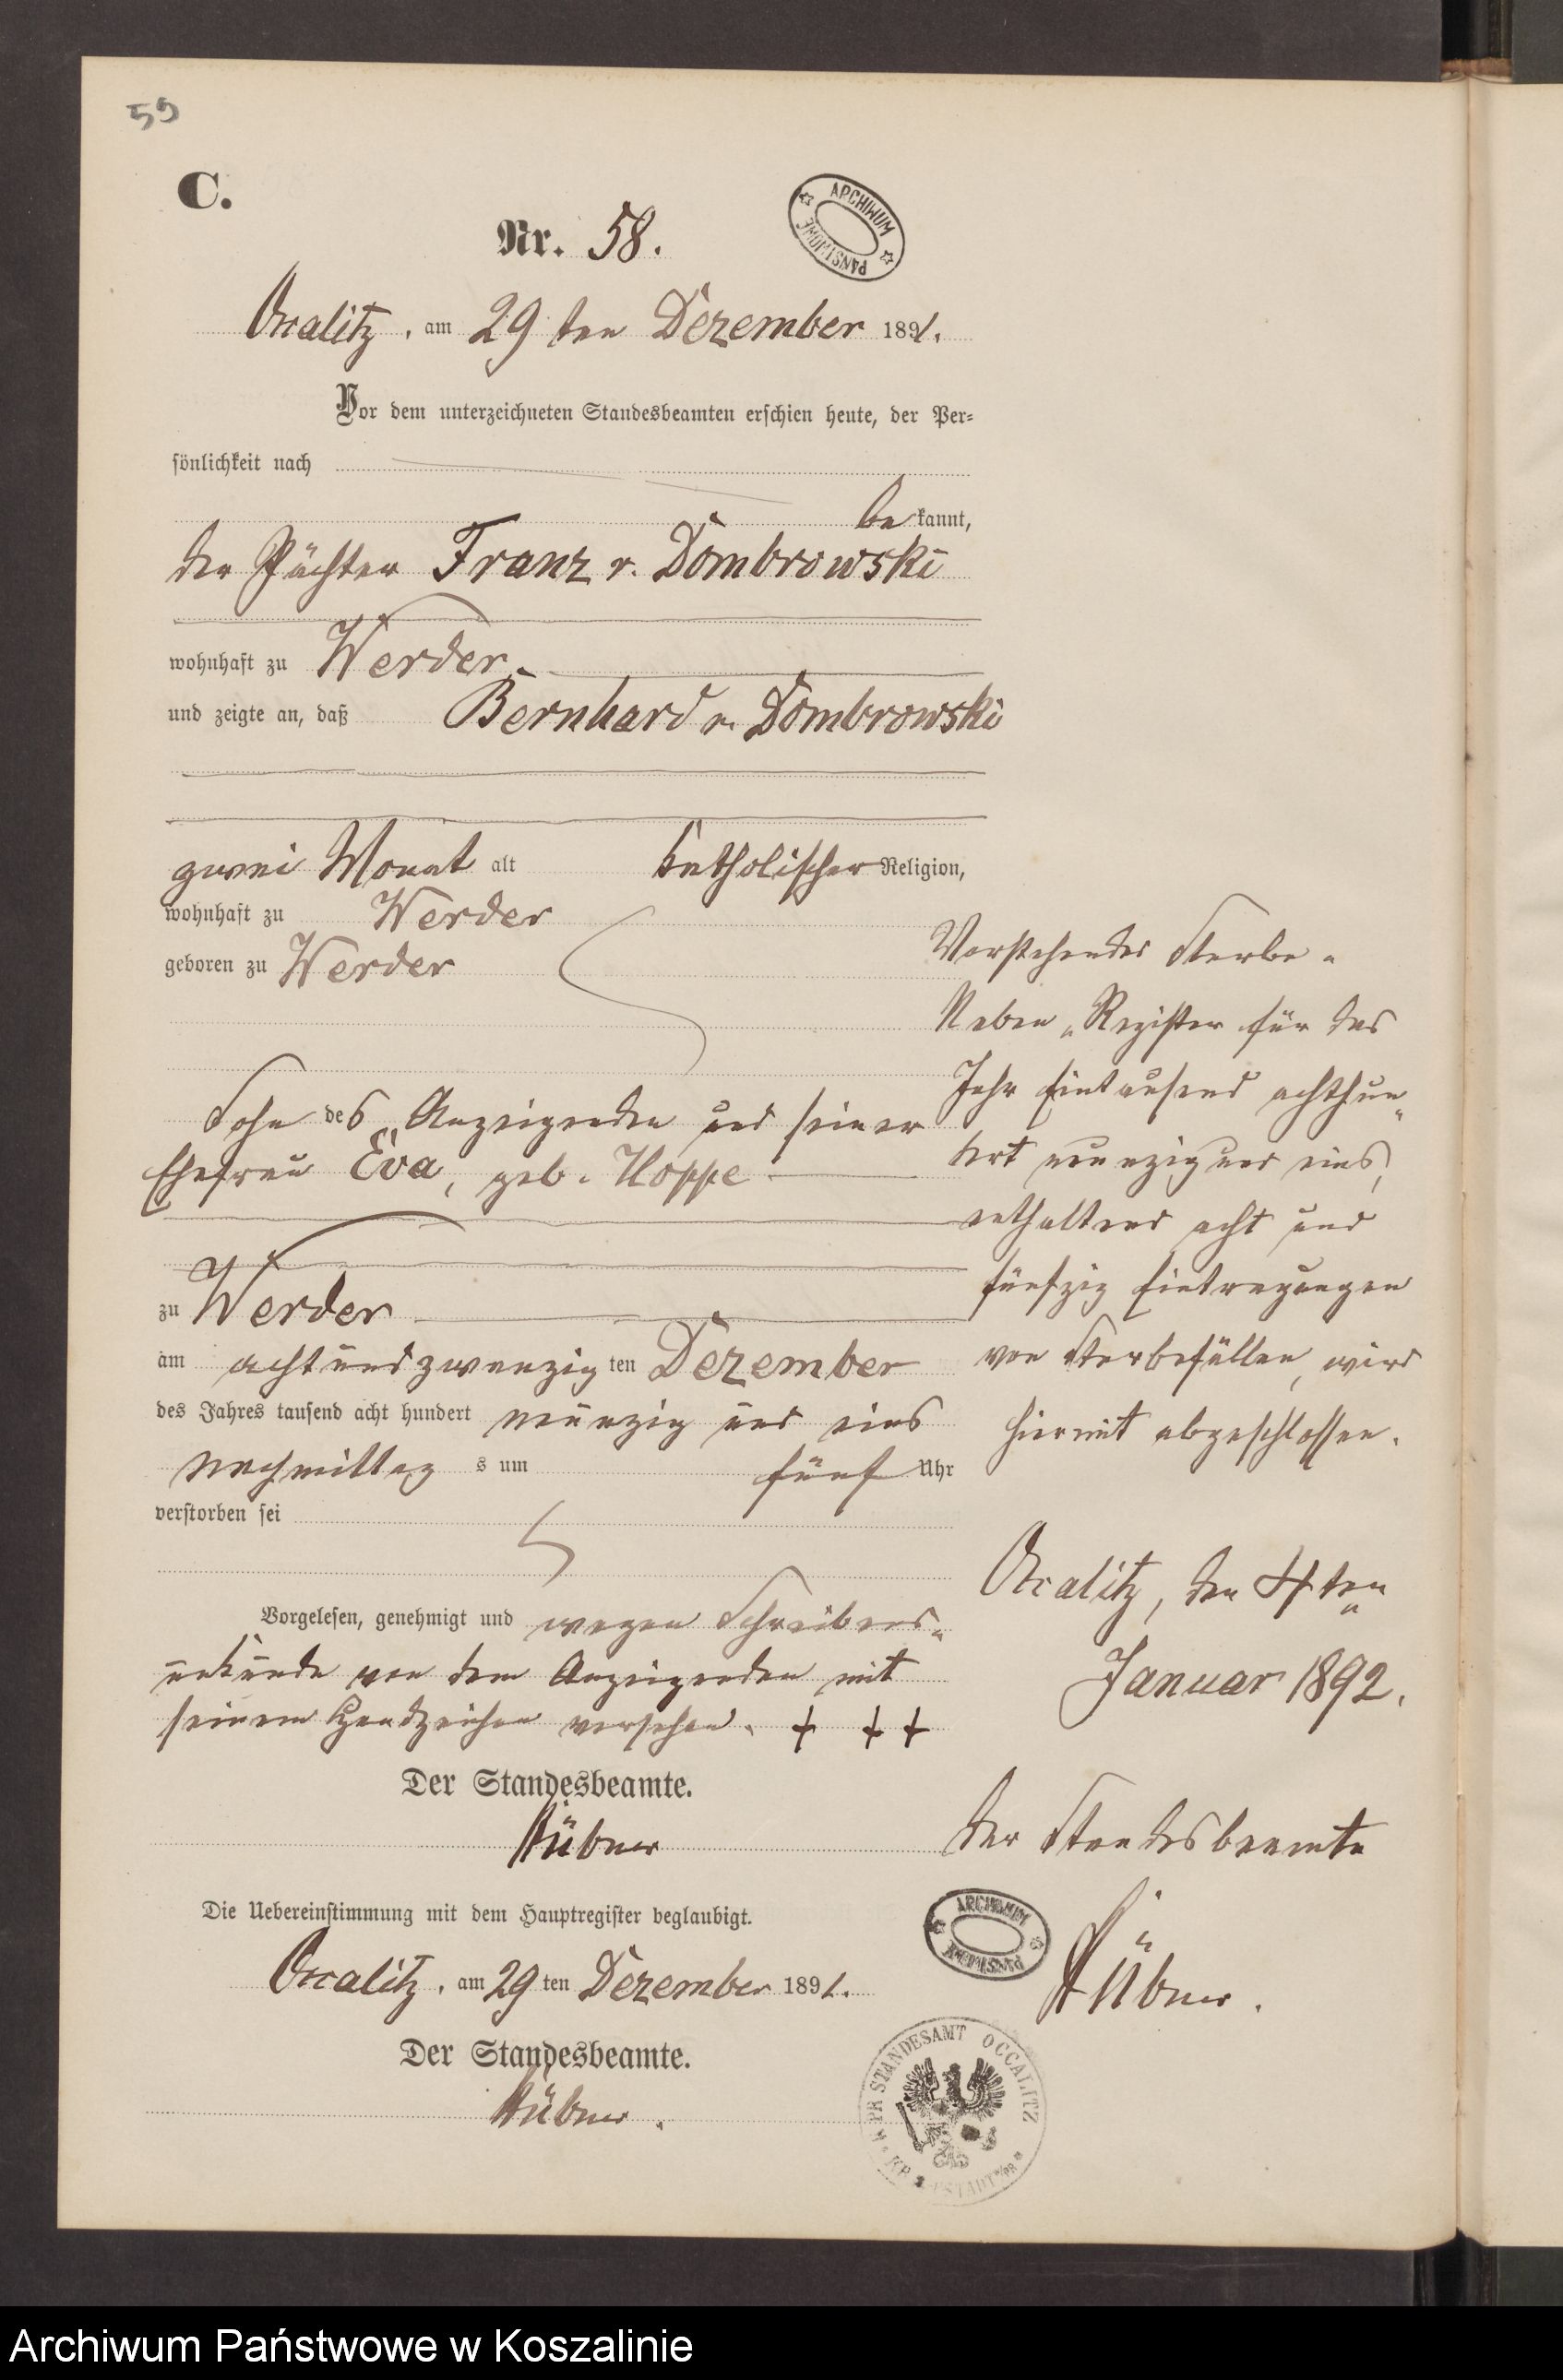 59
C.
Nr. 58.
ARCHIWUM PAŃSTWOWE
Occalitz, am 29 ten Dezember 1891.
Vor dem unterzeichneten Standesbeamten erschien heute, der Per=
sönlichkeit nach
bekannt,
der Pächter Franz v. Dombrowski
wohnhaft zu Werder.
und zeigte an, daß Bernhard v. Dombrowski
zwei Monat alt katholischer Religion,
wohnhaft zu Werder
geboren zu Werder
Sohn des Anzeigenden und seiner
Ehefrau Eva, geb. Hoppe
zu Werder
am achtundzwanzig ten Dezember
des Jahres tausend acht hundert neunzig und eins
Nachmittag s um fünf Uhr
verstorben sei
Vorgelesen, genehmigt und wegen Schreibens-
unkunde von dem Anzeigenden mit
seinem Handzeichen versehen. + + +
Der Standesbeamte.
Hübner
Die Uebereinstimmung mit dem Hauptregister beglaubigt.
Occalitz, am 29 ten Dezember 1891.
Der Standesbeamte.
Hübner.
Vorstehendes Sterbe-
Neben-Register für das
Jahr Eintausend achthun-
dert neunzig und eins,
enthaltend acht und
fünfzig Eintragungen
von Sterbefällen, wird
hiermit abgeschlossen.
Occalitz, den 4ten
Januar 1892.
Der Standesbeamte
ARCHIWUM PAŃSTWOWE
Hübner.
PR STANDESAMT OCCALITZ
Archiwum Państwowe w Koszalinie